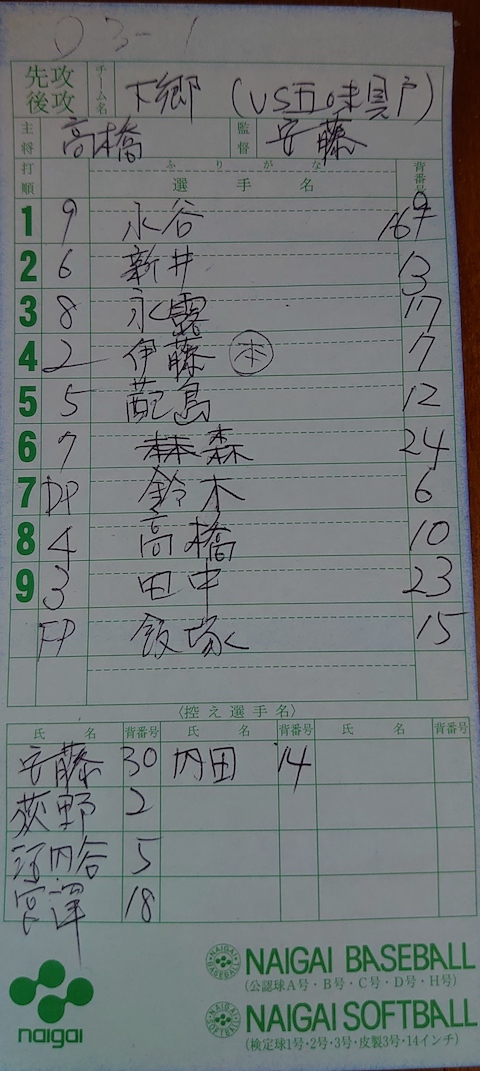 03-1
先攻 後攻 チーム名 下郷 (VS五味貝戸)
主将 高橋 監督 安藤
打順 ふりがな 選手名 背番号
1 9 永谷 16
2 6 新井 13
3 8 永露 17
4 2 伊藤 本 7
5 5 蓜島 12
6 7 森 24
7 DP 鈴木 6
8 4 高橋 10
9 3 田中 23
FP 飯塚 15
〈控え選手名〉
氏名 背番号 氏名 背番号 氏名 背番号
安藤 30 内田 14
荻野 2
河内谷 5
宮澤 18
NAIGAI BASEBALL
(公認球A号・B号・C号・D号・H号)
naigai
NAIGAI SOFTBALL
(検定球1号・2号・3号・皮製3号・14インチ)